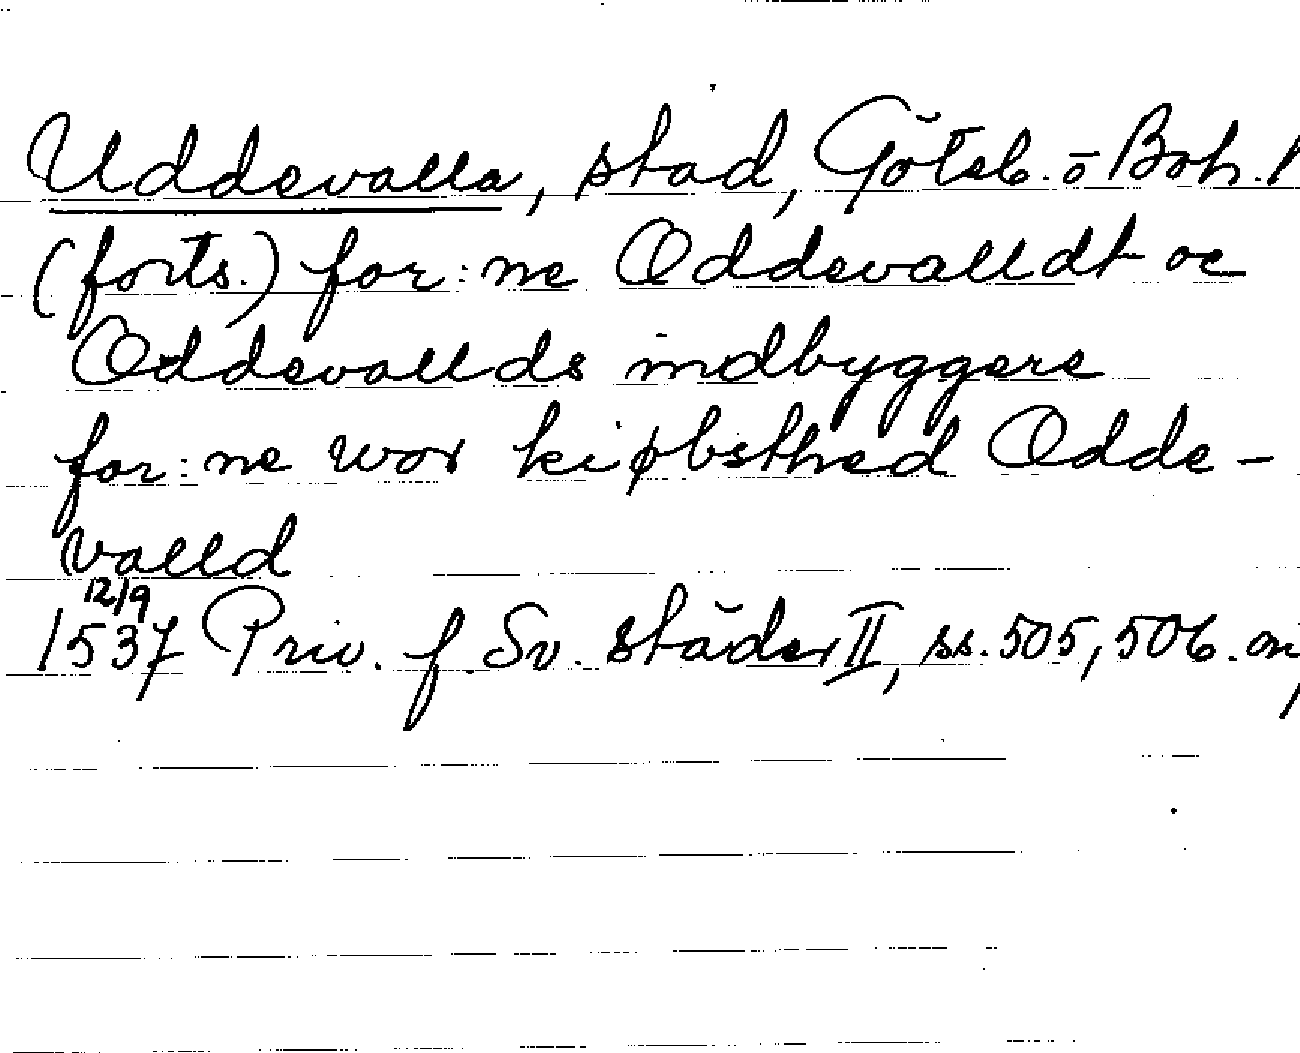 Uddevalla, stad, Göteb. o Boh. l
(forts.) for:ne Oddevalldt oc
Oddevallds indbyggere
for:ne wor kiøbsthed Odde-
valld
12/9
1537 Priv. f. Sv. städer II, ss. 505, 506. or,